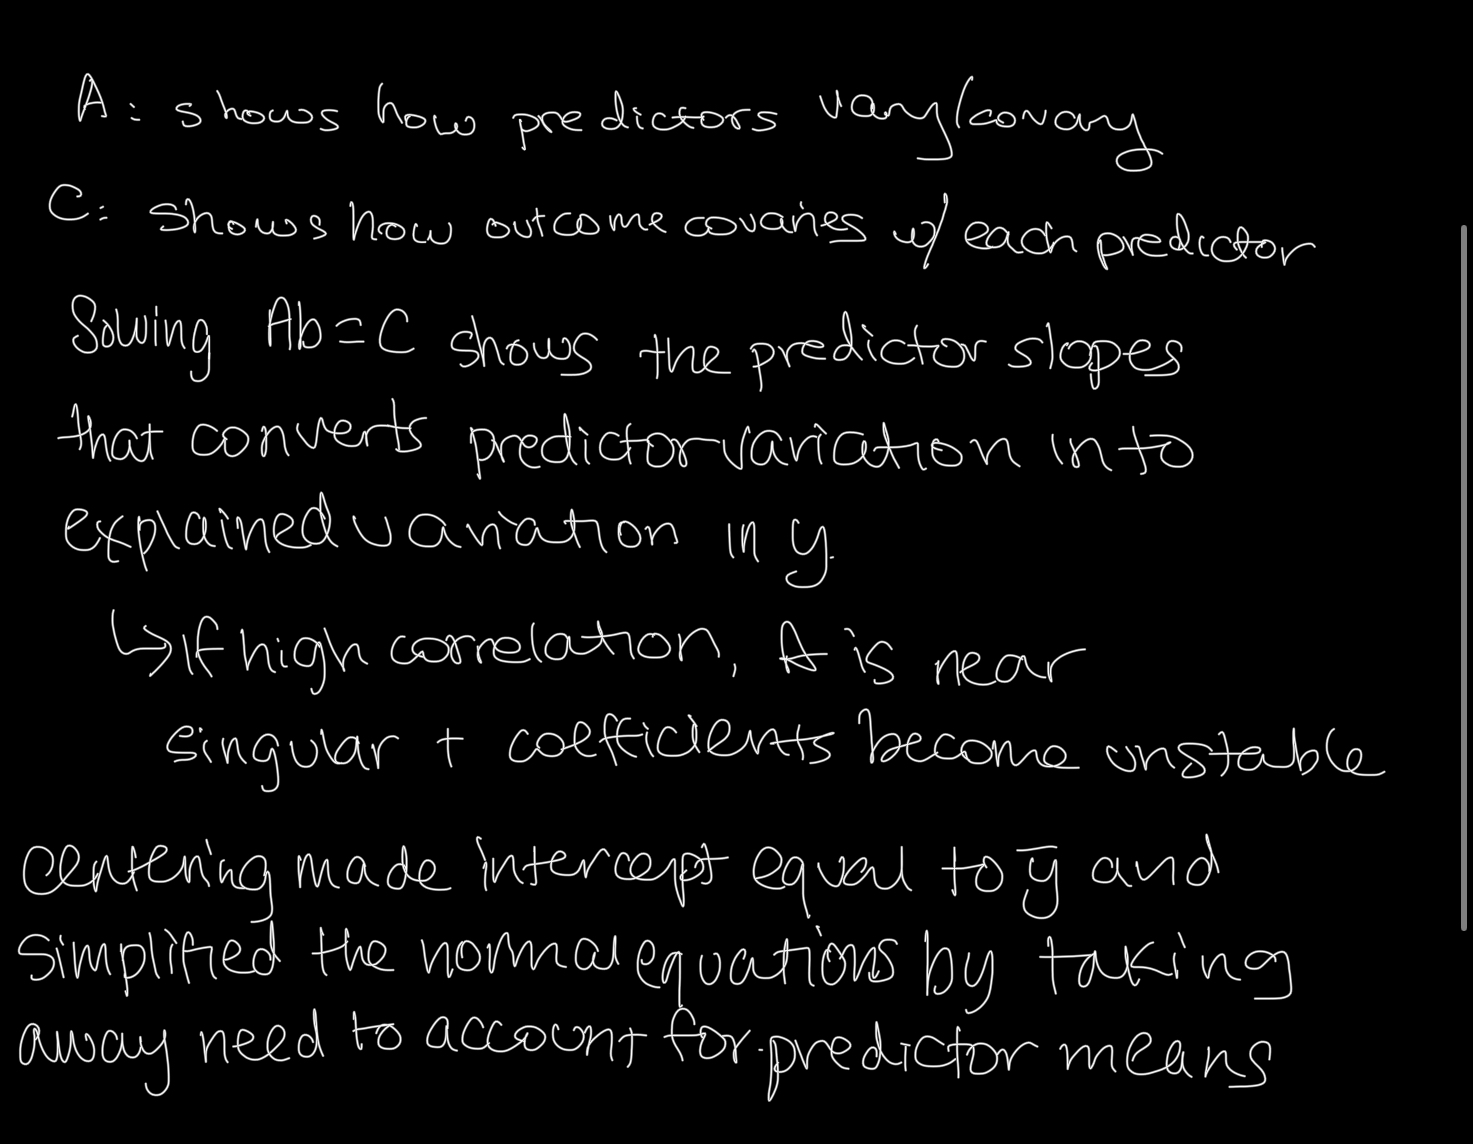 A: shows how predictors vary/covary
C: shows how outcome covaries w/ each predictor
Solving Ab=C shows the predictor slopes
that converts predictor variation into
explained variation in y.
↳ If high correlation, A is near
singular + coefficients become unstable
Centering made intercept equal to ȳ and
simplified the normal equations by taking
away need to account for predictor means